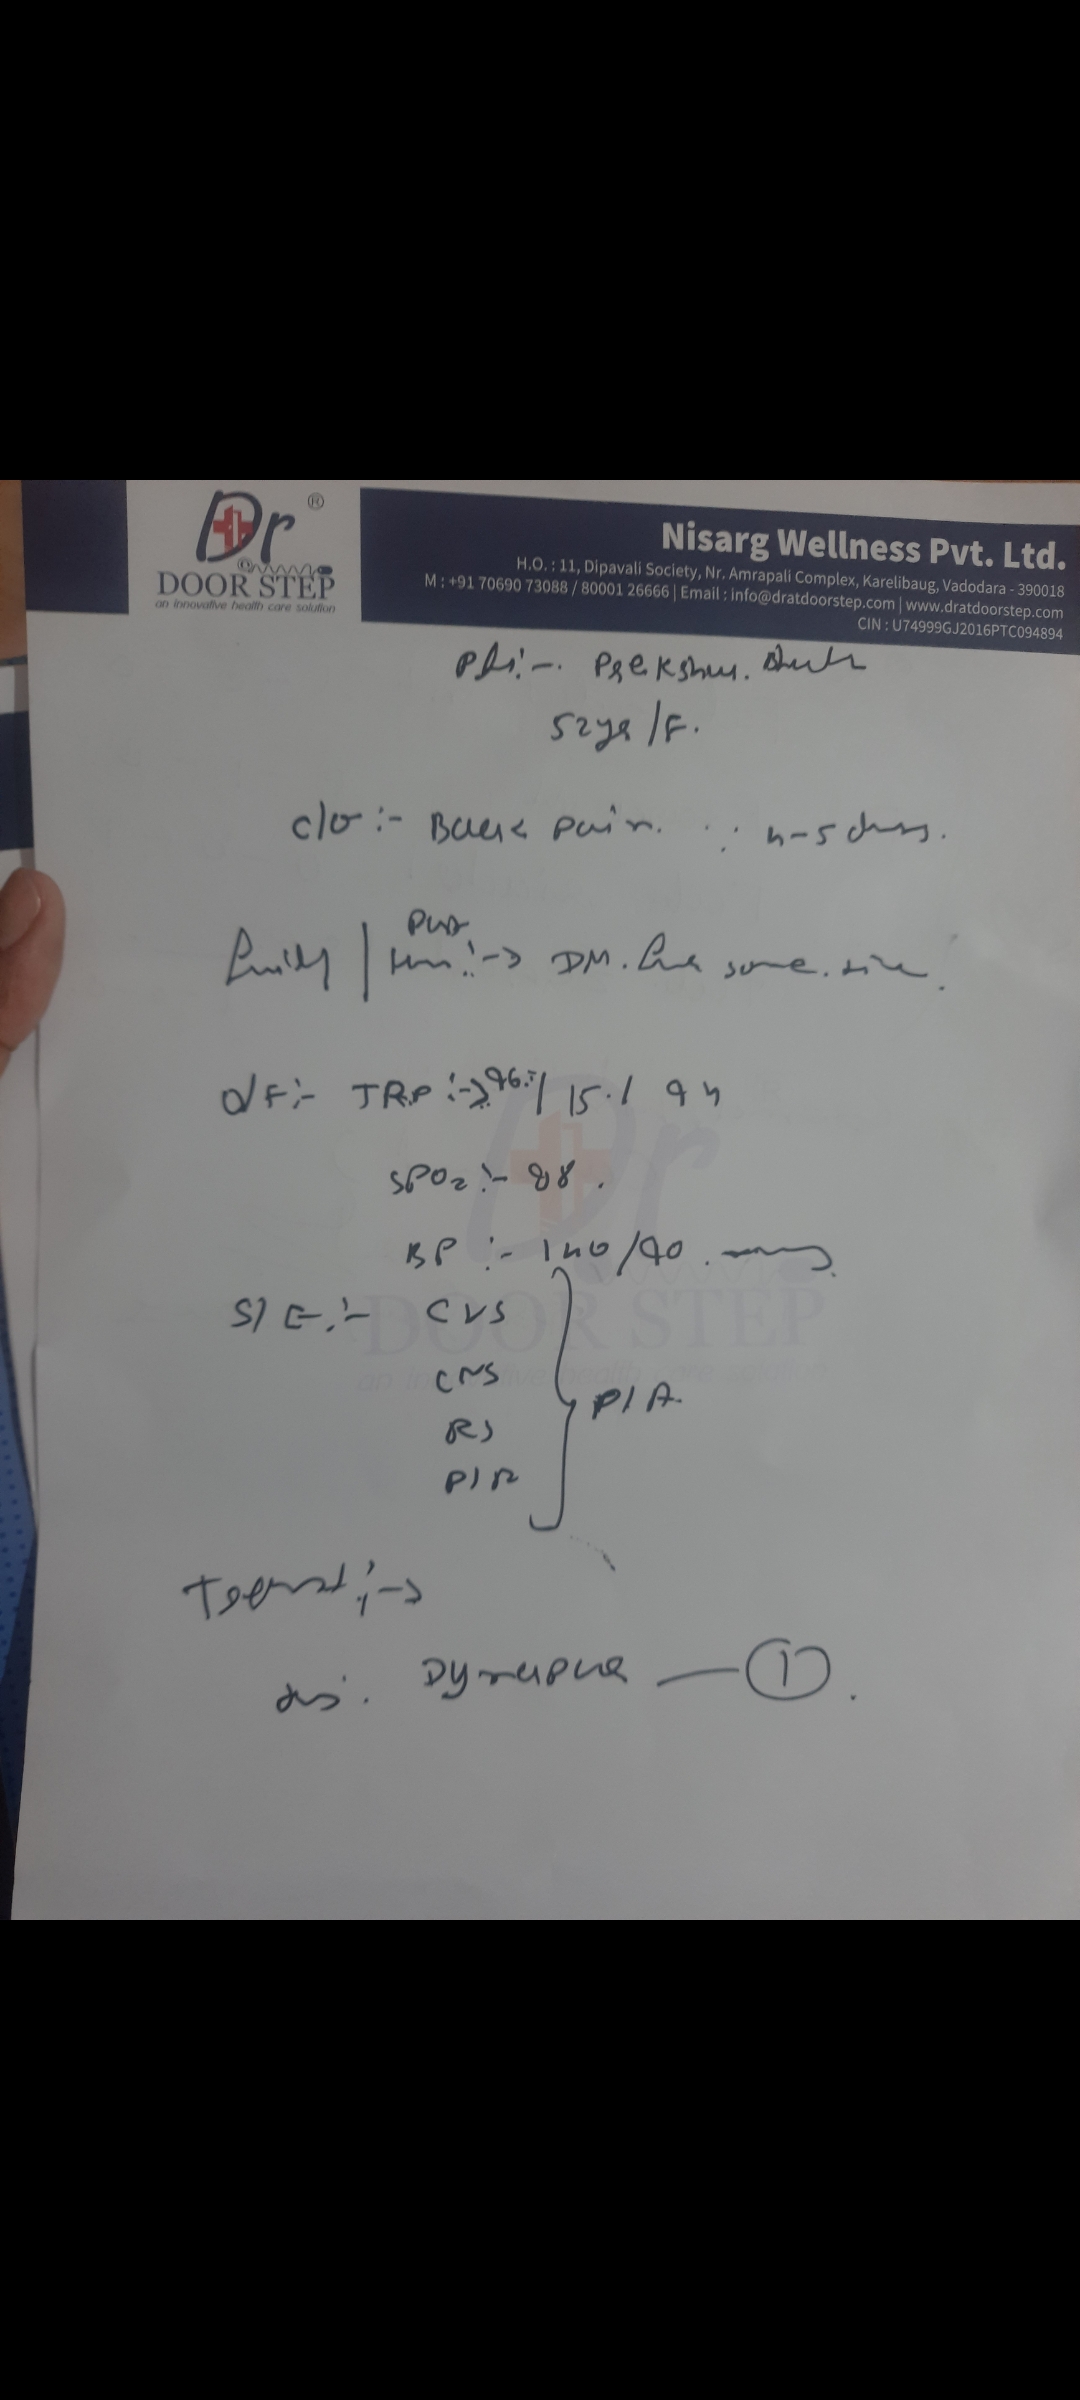 Dr ®
DOOR STEP
an innovative health care solution
Nisarg Wellness Pvt. Ltd.
H.O. : 11, Dipavali Society, Nr. Amrapali Complex, Karelibaug, Vadodara - 390018
M : +91 70690 73088 / 80001 26666 | Email : info@dratdoorstep.com | www.dratdoorstep.com
CIN : U74999GJ2016PTC094894
52 yr /F.
c/o :- Back pain. 4-5 days.
Family | Past :-> DM. some
O/E :- TRP :-> 96 / 15 / 94
SPO2 :-
BP :- 140/90
S/E :- CVS
CNS
RS
P/A
Treatment :->
Dynapar — 1